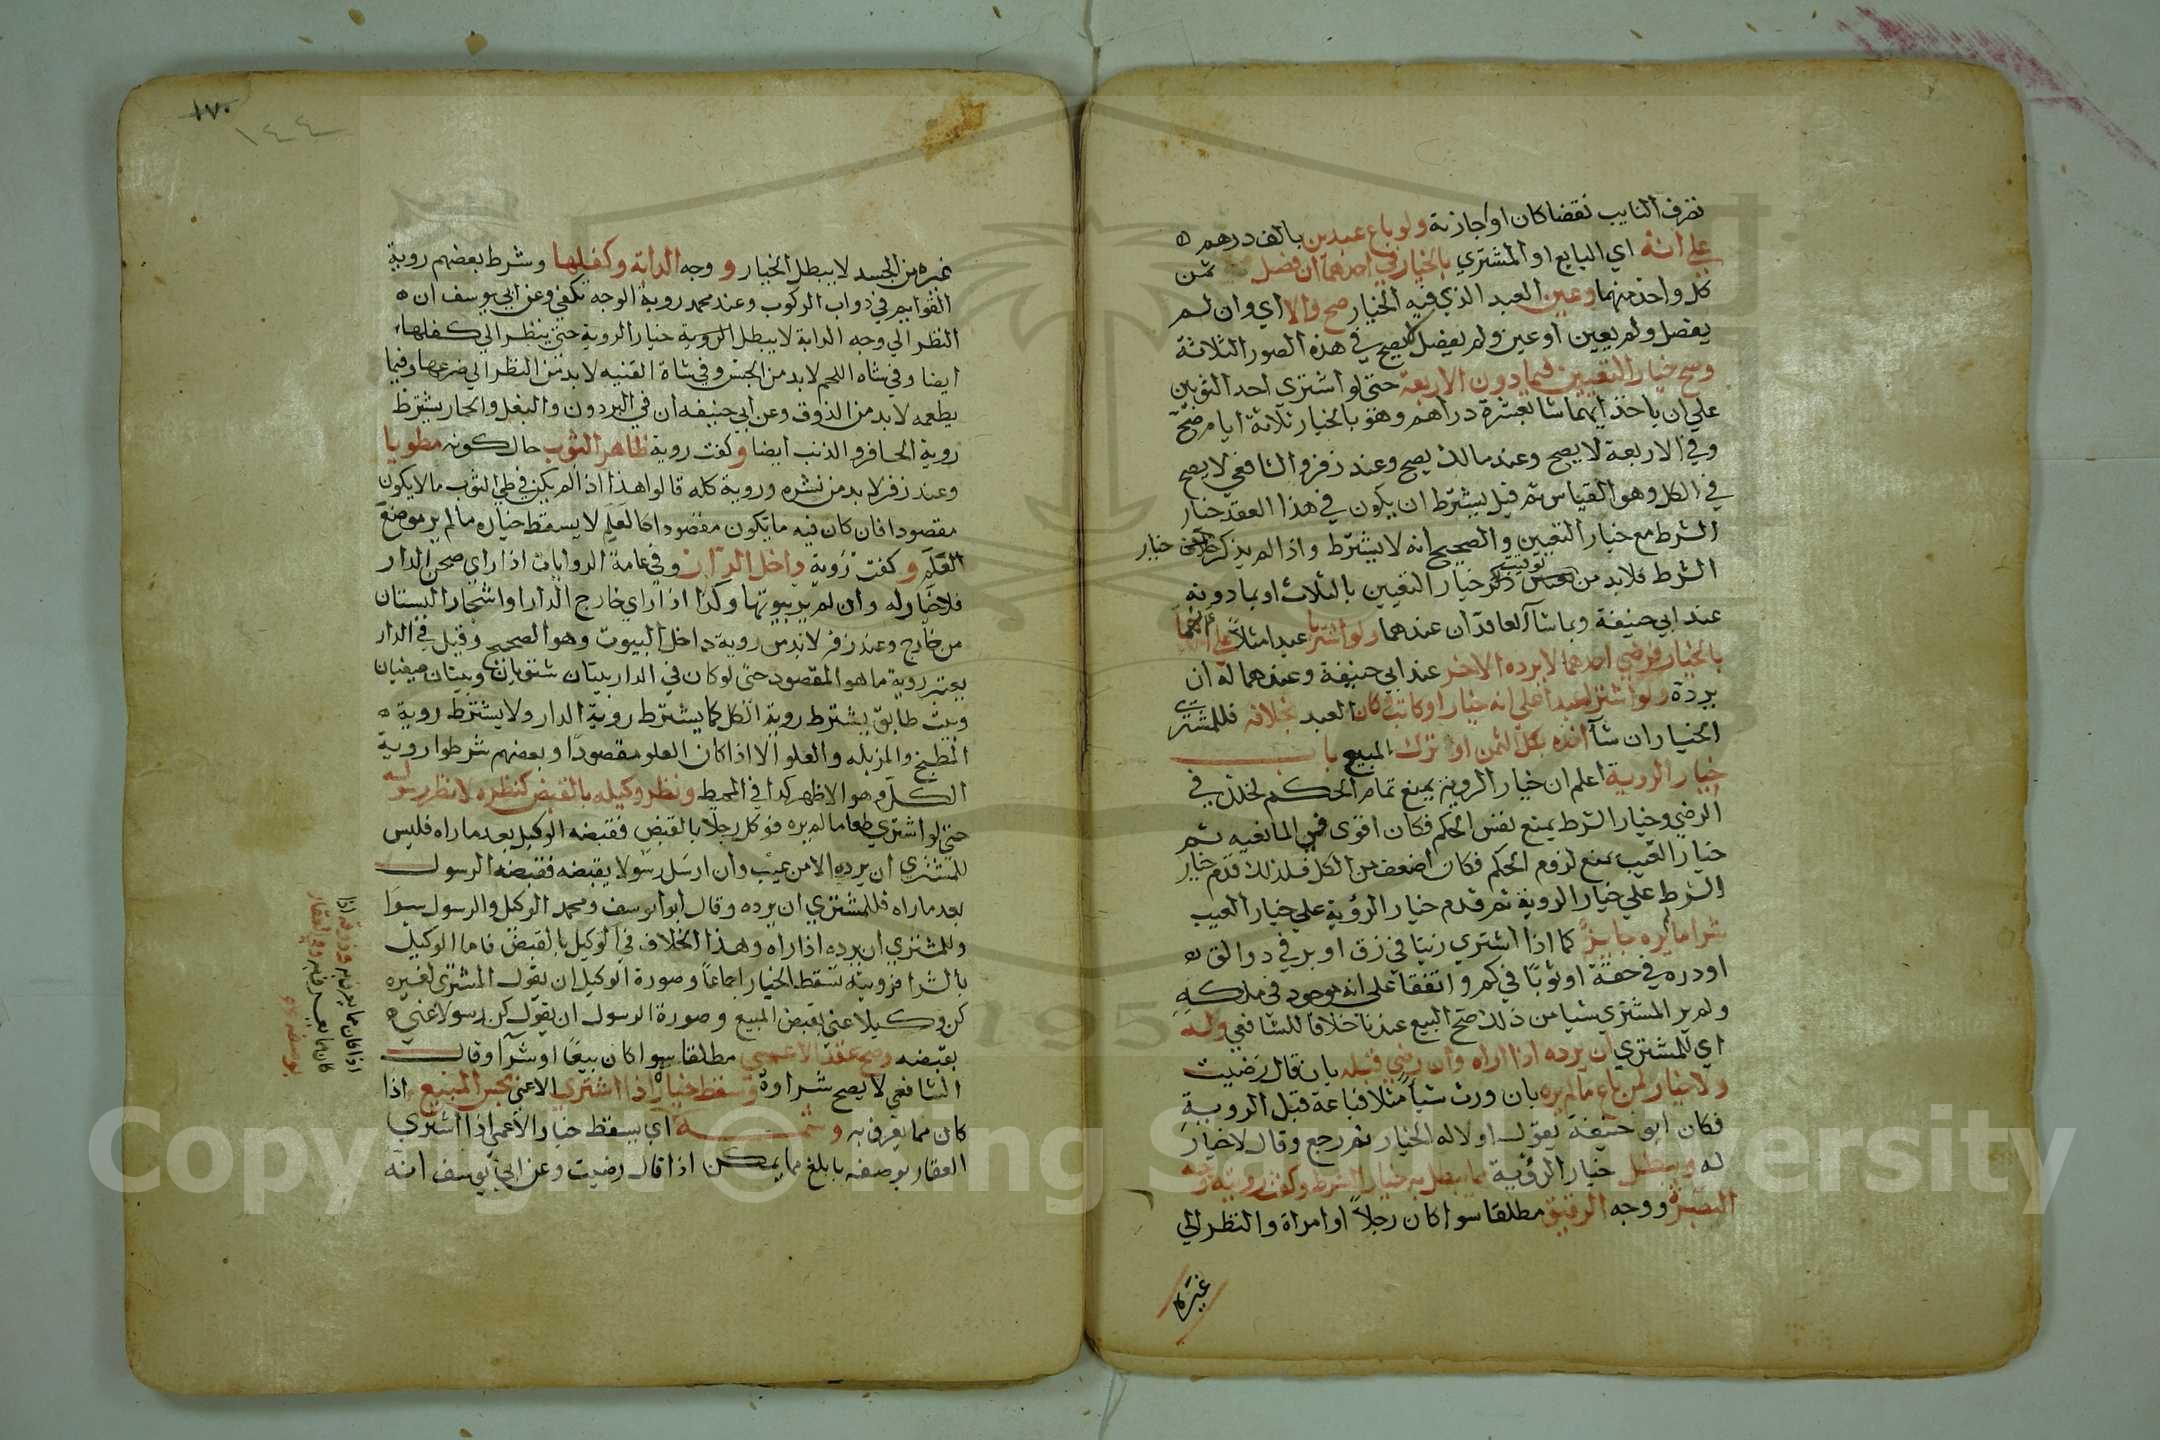 تصرف النايب نقضا كان او اجازة ولو باع عبدين بالف درهم
علي انه اي البايع او المشتري بالخيار في احدهما ان فصل ثمن
كل واحد منهما وعين العبد الذي فيه الخيار صح والا اي وان لم
يفصل ولم يعين او عين ولم يفصل لا يصح في هذه الصور الثلاثة
وصح خيار التعيين فيما دون الاربعة حتى لو اشتري احد الثوبين
علي ان ياخذ ايهما شا بعشرة دراهم وهو بالخيار ثلاثة ايام صح
وفي الاربعة لا يصح وعند مالك يصح وعند زفر والشافعي لا يصح
في الكل وهو القياس ثم قيل يشترط ان يكون في هذا العقد خيار
الشرط مع خيار التعيين والصحيح انه لا يشترط واذا لم يذكر خيار
الشرط فلا بد من توقيت خيار التعيين بالثلاث او بما دونه
عند ابي حنيفة وبما شآ العاقدان عندهما ولو اشتريا عبدا مثلاً علي انهما
بالخيار فرضي احدهما لا يرده الاخر عند ابي حنيفة وعندهما له ان
يرده ولو اشتر عبدا علي انه خباز او كاتب فكان العبد بخلافه فللمشتري
الخيار ان شآ اخذه بكل الثمن او ترك المبيع باب
خيار الروية اعلم ان خيار الروية يمنع تمام الحكم لخلل في
الرضي وخيار الشرط يمنع نفس الحكم فكان اقوى في المانعيه ثم
خيار العيب يمنع لزوم الحكم فكان اضعف من الكل فلذلك قدم خيار
الشرط علي خيار الروية ثم قدم خيار الرؤية علي خيار العيب
شرا ما لم يره جايز كما اذا اشتري زيتا في زق او بر في دوالق
او دره في حقة او ثوبًا في كم واتفقا على انه موجود في ملكه
ولم ير المشتري شيا من ذلك صح البيع عندنا خلافا للشافعي وله
اي للمشتري ان يرده اذا راه وان رضي قبله بان قال رضيت
ولا خيار لمن باع ما لم يره بان ورث شياً مثلا فباعه قبل الروية
فكان ابو حنيفة يقول اولا له الخيار ثم رجع وقال لا خيار
له ويبطل خيار الرؤية بما يبطل به خيار الشرط وكفت روية وجه
الصبرة ووجه الرقيق مطلقا سوا كان رجلاً او امراة والنظر الي
غيره
١٧٠
١٤٤
غيره من الجسد لا يبطل الخيار و وجه الدابة وكفلها وشرط بعضهم روية
القوايم في ذواب الركوب وعند محمد روية الوجه يكفي وعن ابي يوسف ان
النظر الي وجه الدابة لا يبطل الروية خيار الروية حتى ينظر الي كفلها
ايضا وفي شاه اللحم لا بد من الجس وفي شاة القنيه لا بد من النظر الي ضرعها وفيما
يطعمه لا بد من الذوق وعن ابي حنيفه ان في البردون والبغل والحمار يشترط
روية الحافر والذنب ايضا وكفت روية ظاهر الثوب حال كونه مطويا
وعند زفر لا بد من نشره وروية كله قالوا هذا اذا لم يكن في طي الثوب ما لا يكون
مقصودا فان كان فيه ما يكون مقصودا كالعلم لا يسقط خياره ما لم ير موضع
العلم وكفت رؤية داخل الدار وفي عامة الروايات اذا راي صحن الدار
فلا خيار له وان لم ير بيوتها وكذا اذا راي خارج الدار او اشجار البستان
من خارج وعند زفر لا بد من روية داخل البيوت وهو الصحيح وقيل في الدار
يعتبر روية ما هو المقصود حتى لو كان في الدار بيتان شتويان وبيتان صيفيان
وبيت طابق يشترط روية الكل كما يشترط روية الدار ولا يشترط روية
المطبخ والمزبله والعلو الا اذا كان العلو مقصودًا وبعضهم شرطوا روية
الكل وهو الاظهر كذا في المحيط ونظر وكيله بالقبض كنظره لا نظر رسوله
حتى لو اشتري طعاما لم يره فوكل رجلا بالقبض فقبضه الوكيل بعد ما راه فليس
للمشتري ان يرده الا من عيب وان ارسل رسولا يقبضه فقبضه الرسول
بعد ما راه فللمشتري ان يرده وقال ابو يوسف ومحمد الوكيل والرسول سوا
وللمشتري ان يرده اذا راه وهذا الخلاف في الوكيل بالقبض فاما الوكيل
بالشرا فرويته تسقط الخيار اجماعا وصورة الوكيل ان يقول المشتري لغيره
كن وكيلا عني بقبض المبيع وصورة الرسول ان يقول كن رسولا عني
بقبضه وصح عقد الاعمي مطلقا سوا كان بيعًا او شرا وقال
الشافعي لا يصح شراوه وسقط خياره اذا اشتري الاعمي بجس المبيع اذا
كان مما يعرف به وشمه اي يسقط خيار الاعمي اذا اشتري
العقار بوصفه بابلغ مما يمكن اذا قال رضيت وعن ابي يوسف انه